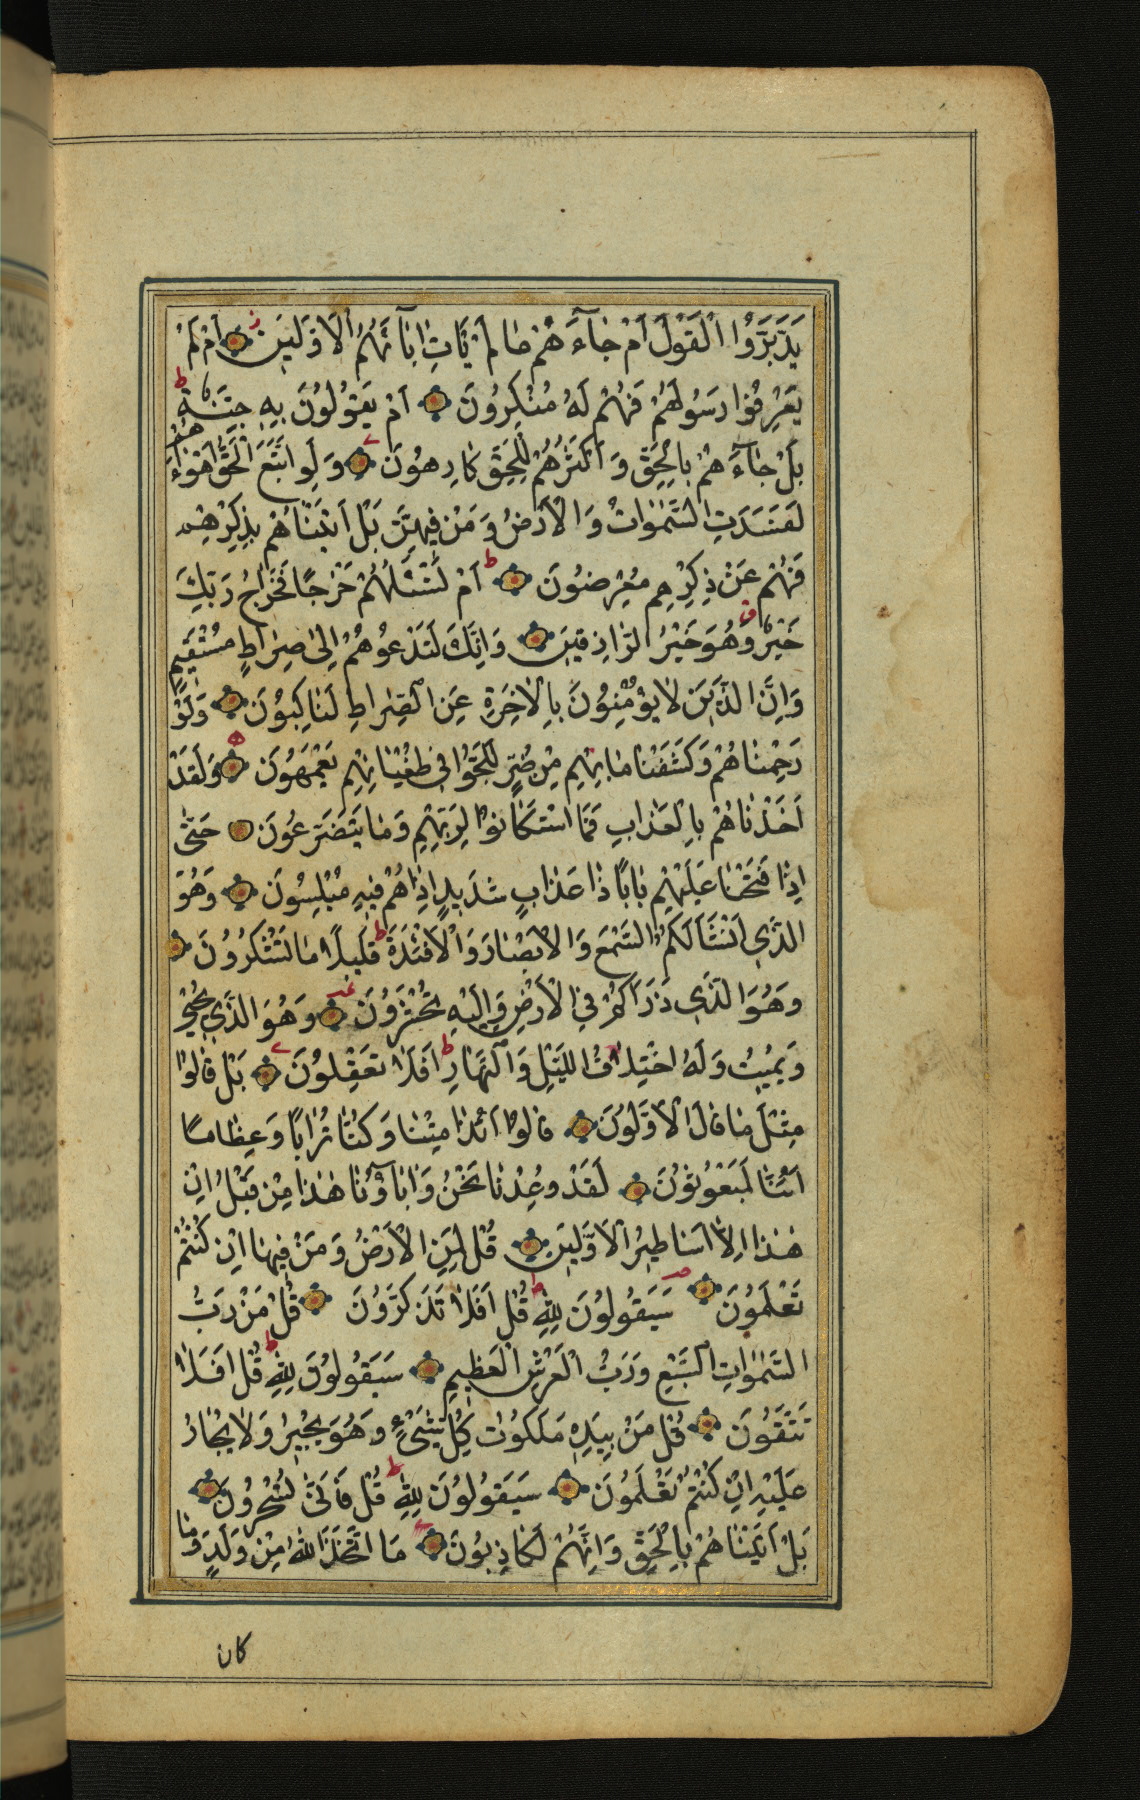 يَدَّبَّرُوا الْقَوْلَ أَمْ جَاءَهُمْ مَا لَمْ يَأْتِ اٰبَاءَهُمُ الْاَوَّلِينَ ز اَمْ لَمْ
يَعْرِفُوا رَسُولَهُمْ فَهُمْ لَهُ مُنْكِرُونَ اَمْ يَقُولُونَ بِهِ جِنَّةٌ ط
بَلْ جَاءَهُمْ بِالْحَقِّ وَاَكْثَرُهُمْ لِلْحَقِّ كَارِهُونَ وَلَوِ اتَّبَعَ الْحَقُّ اَهْوَاءَهُمْ
لَفَسَدَتِ السَّمٰوَاتُ وَالْاَرْضُ وَمَنْ فِيهِنَّ بَلْ اَتَيْنَاهُمْ بِذِكْرِهِمْ
فَهُمْ عَنْ ذِكْرِهِمْ مُعْرِضُونَ ط اَمْ تَسْئَلُهُمْ خَرْجًا فَخَرَاجُ رَبِّكَ
خَيْرٌ ق وَهُوَ خَيْرُ الرَّازِقِينَ وَاِنَّكَ لَتَدْعُوهُمْ اِلٰى صِرَاطٍ مُسْتَقِيمٍ
وَاِنَّ الَّذِينَ لَا يُؤْمِنُونَ بِالْاٰخِرَةِ عَنِ الصِّرَاطِ لَنَاكِبُونَ وَلَوْ
رَحِمْنَاهُمْ وَكَشَفْنَا مَا بِهِمْ مِنْ ضُرٍّ لَلَجُّوا فِى طُغْيَانِهِمْ يَعْمَهُونَ وَلَقَدْ
اَخَذْنَاهُمْ بِالْعَذَابِ فَمَا اسْتَكَانُوا لِرَبِّهِمْ وَمَا يَتَضَرَّعُونَ حَتّٰى
اِذَا فَتَحْنَا عَلَيْهِمْ بَابًا ذَا عَذَابٍ شَدِيدٍ اِذَا هُمْ فِيهِ مُبْلِسُونَ وَهُوَ
الَّذِى اَنْشَاَ لَكُمُ السَّمْعَ وَالْاَبْصَارَ وَالْاَفْئِدَةَ ط قَلِيلًا مَا تَشْكُرُونَ
وَهُوَ الَّذِى ذَرَاَكُمْ فِى الْاَرْضِ وَاِلَيْهِ تُحْشَرُونَ وَهُوَ الَّذِى يُحْيِى
وَيُمِيتُ وَلَهُ اخْتِلَافُ اللَّيْلِ وَالنَّهَارِ ط اَفَلَا تَعْقِلُونَ بَلْ قَالُوا
مِثْلَ مَا قَالَ الْاَوَّلُونَ قَالُوا اَئِذَا مِتْنَا وَكُنَّا تُرَابًا وَعِظَامًا
اَئِنَّا لَمَبْعُوثُونَ لَقَدْ وُعِدْنَا نَحْنُ وَاٰبَاؤُنَا هٰذَا مِنْ قَبْلُ اِنْ
هٰذَا اِلَّا اَسَاطِيرُ الْاَوَّلِينَ قُلْ لِمَنِ الْاَرْضُ وَمَنْ فِيهَا اِنْ كُنْتُمْ
تَعْلَمُونَ سَيَقُولُونَ لِلّٰهِ ط قُلْ اَفَلَا تَذَكَّرُونَ قُلْ مَنْ رَبُّ
السَّمٰوَاتِ السَّبْعِ وَرَبُّ الْعَرْشِ الْعَظِيمِ سَيَقُولُونَ لِلّٰهِ ط قُلْ اَفَلَا
تَتَّقُونَ قُلْ مَنْ بِيَدِهِ مَلَكُوتُ كُلِّ شَىْءٍ وَهُوَ يُجِيرُ وَلَا يُجَارُ
عَلَيْهِ اِنْ كُنْتُمْ تَعْلَمُونَ سَيَقُولُونَ لِلّٰهِ ط قُلْ فَاَنّٰى تُسْحَرُونَ
بَلْ اَتَيْنَاهُمْ بِالْحَقِّ وَاِنَّهُمْ لَكَاذِبُونَ مَا اتَّخَذَ اللّٰهُ مِنْ وَلَدٍ وَمَا
كان